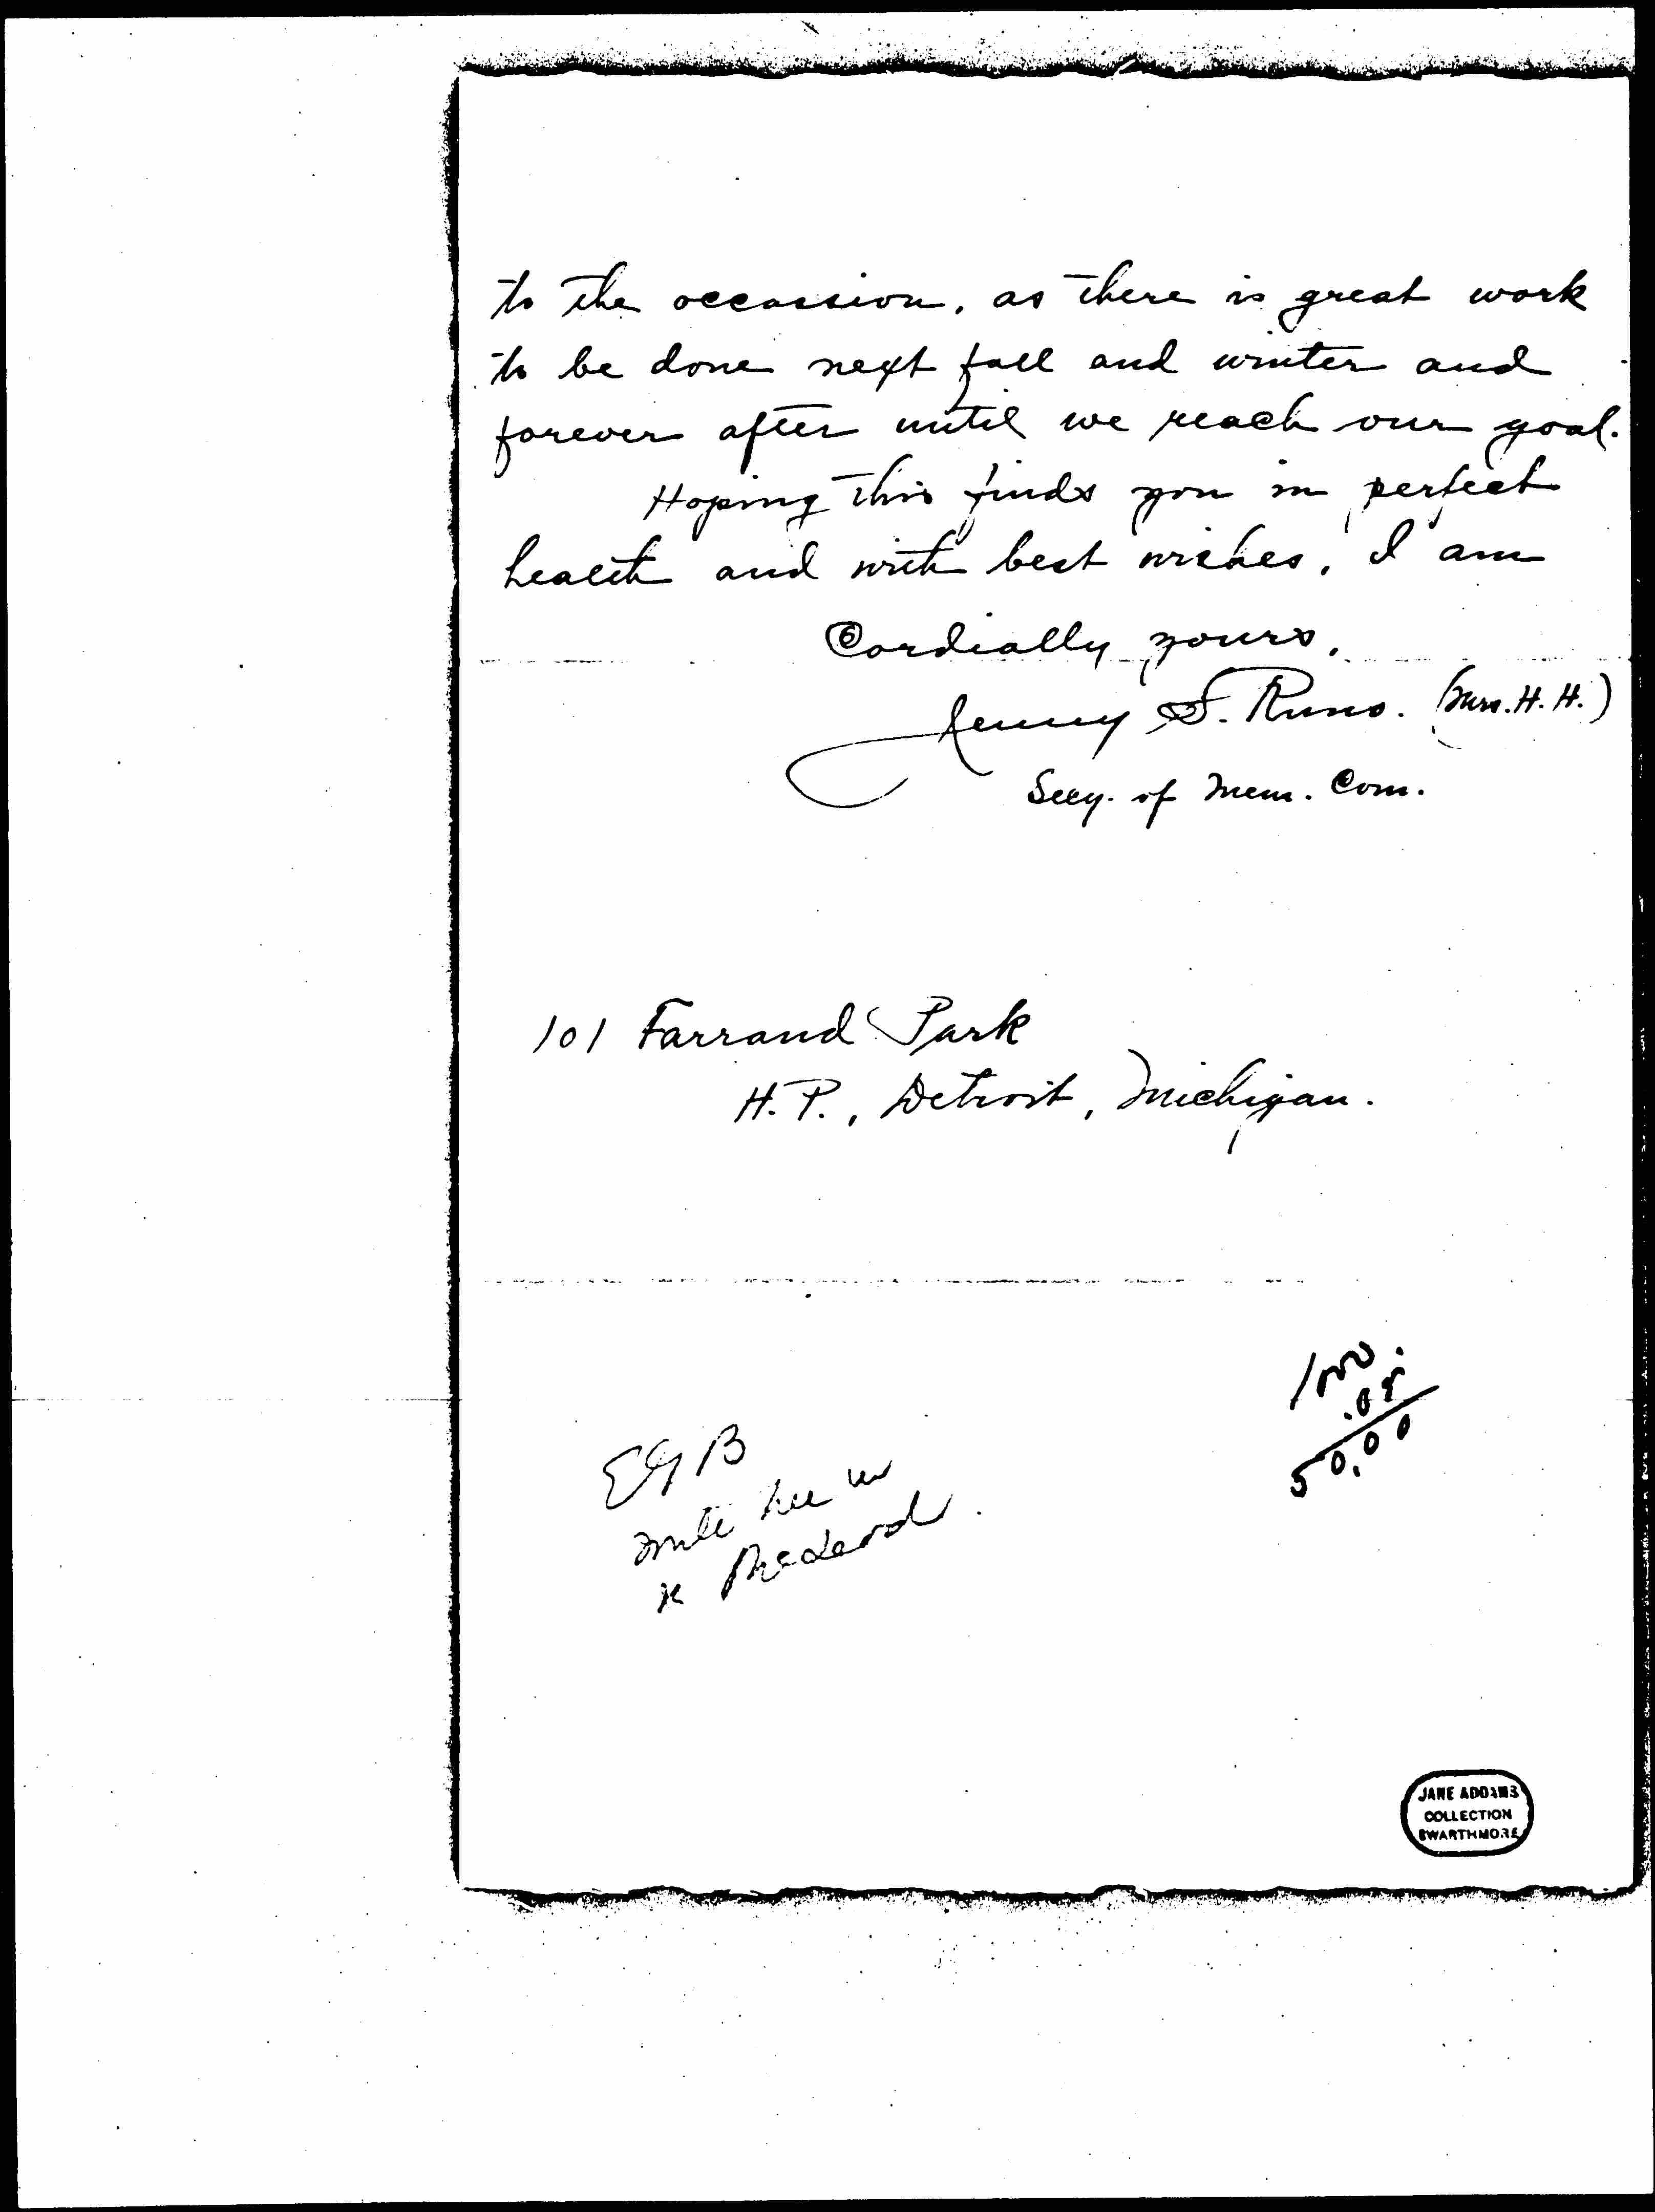 to the occassion, as there is great work
to be done next fall and winter and
forever after until we reach our goal.
Hoping this finds you in perfect
health and with best wishes, I am
Cordially yours,
Jenny S. Runo. (Mrs. H. H.)
Secy. of Mem. Com.
101 Farrand Park
H. P., Detroit, Michigan.
1000.
.05
50.00
EGB
JANE ADDAMS
COLLECTION
SWARTHMORE